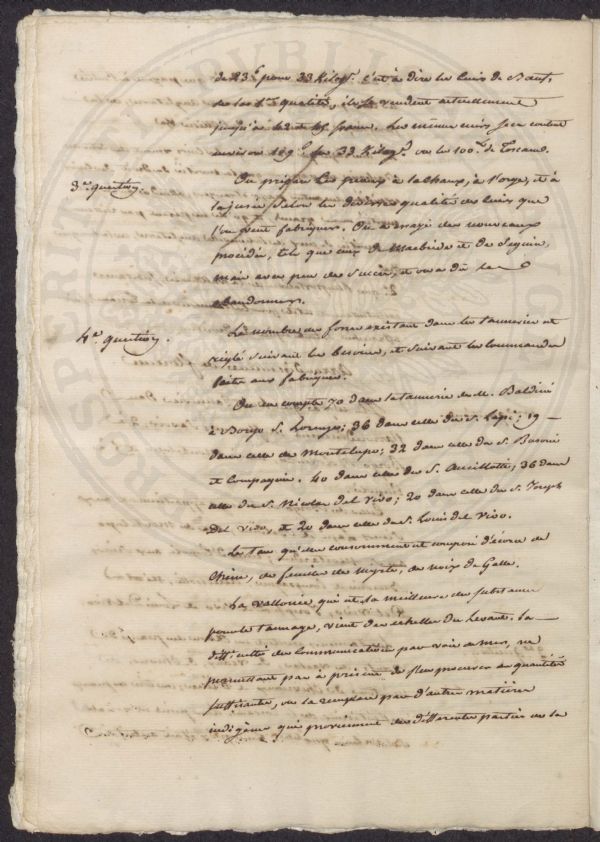 de 23 f. pour 33 Kilog. c'est à dire les cuirs de Bœuf,
de la 1.re qualité, ils se vendent actuellement
jusqu'à 42 et 45 francs. Les mêmes cuirs secs coûtent
environ 129 f. les 33 Kilog. ou les 100 l. de Toscane.
3.e question.
On prépare les peaux à la chaux, à l'orge, et à
la jusée selon les diverses qualités des cuirs que
l'on veut fabriquer. On a essayé des nouveaux
procédés, tels que ceux de Macbride et de Seguin,
mais avec peu de succès, et on a dû les
abandonner.
4.e question.
Le nombre des fosses existant dans les tanneries est
réglé suivant les besoins, et suivant les commandes
faites aux fabriques.
On en compte 70 dans la tannerie de M. Baldini
à Borgo S. Lorenzo; 36 dans celle du S. Lapi; 19
dans celle de Montelupo; 32 dans celle du S.
et Compagnie. 40 dans celle du S. 36 dans
celle du S. Nicolas del Vivo; 20 dans celle du S. Joseph
Del Vivo, et 20 dans celle du S. Louis del Vivo.
Le tan qu'elles consomment est composé d'écorce de
Chêne, de feuilles de Myrte, de noix de Galle.
La vallonée qui est la meilleure des substances
pour le tannage, vient des échelles du Levant. La
difficulté des communications par voie de mer, ne
permettant pas à présent de s'en procurer en quantité
suffisante, on la remplace par d'autres matières
indigènes qui proviennent des différentes parties de la